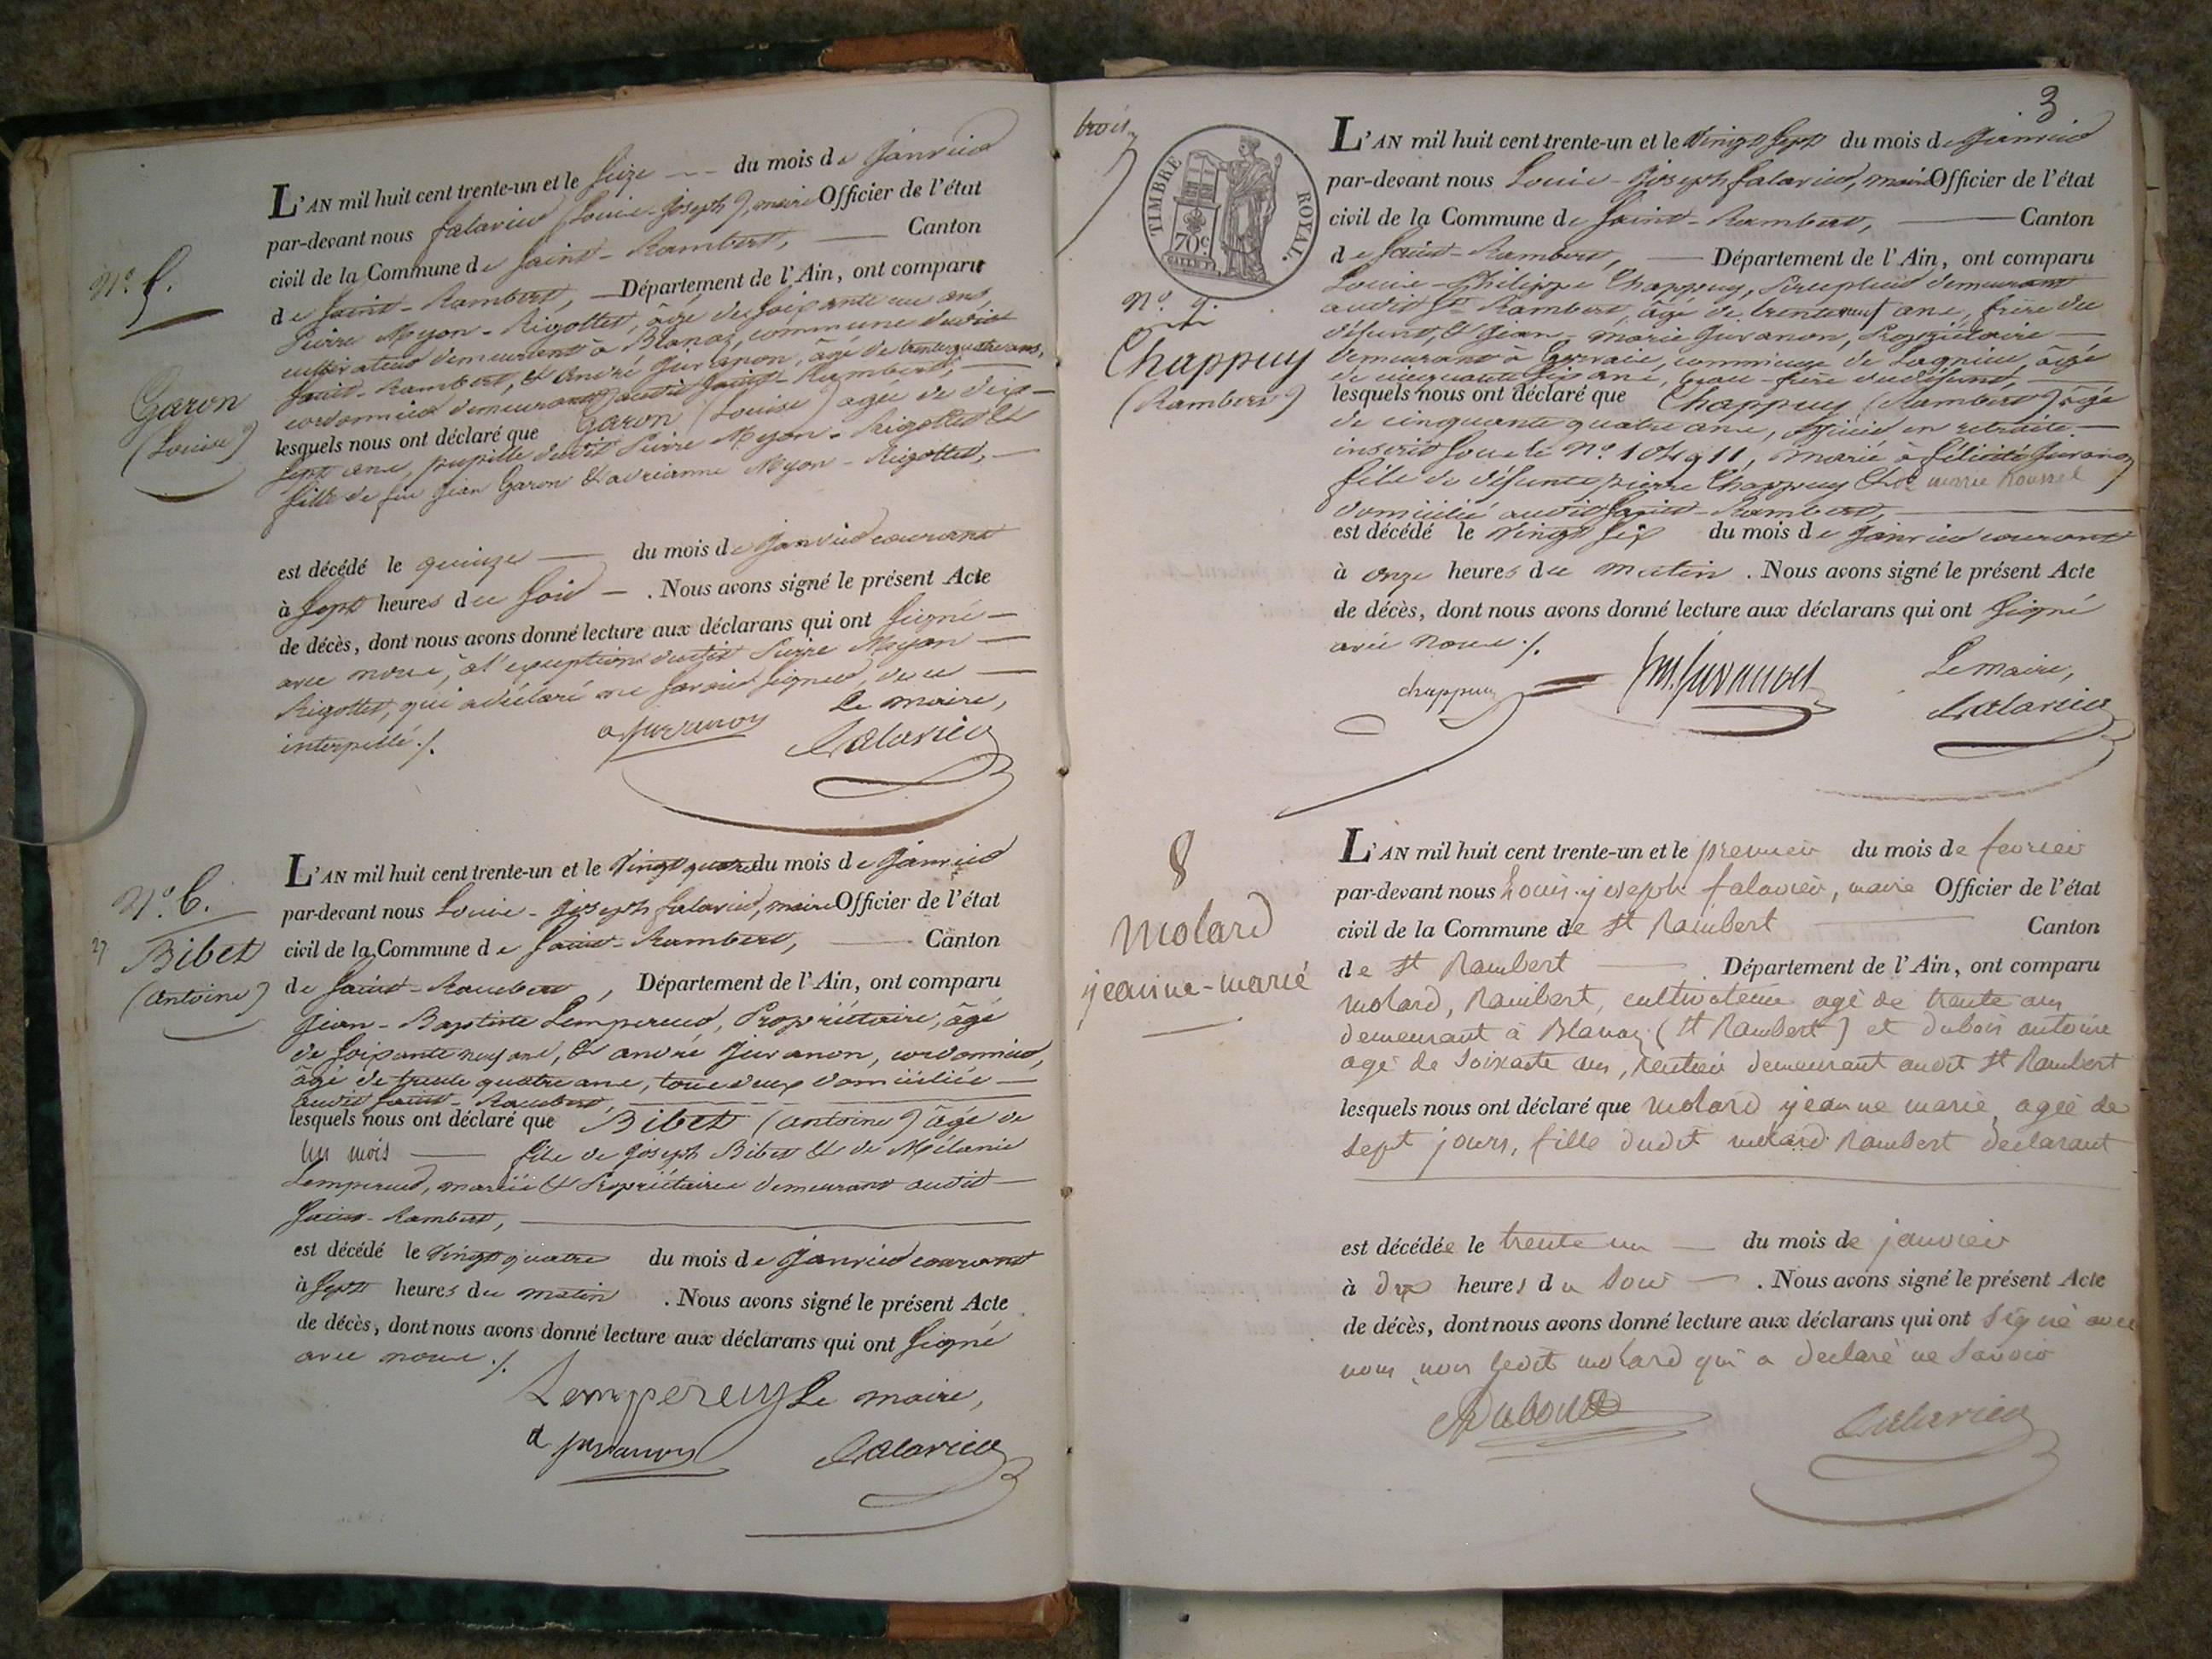 L'AN mil huit cent trente-un et le Seize du mois de Janvier
par-devant nous falavier (Louis-Joseph), maire Officier de l'état
civil de la Commune de Saint-Rambert, Canton
de Saint-Rambert, Département de l'Ain, ont comparu
Pierre Myon-Rigottet, âgé de Soixante un ans,
cultivateur demeurant à Blanaz, commune dudit
Saint-Rambert, & André Juvanon, âgé de trente quatre ans,
cordonnier demeurant audit Saint-Rambert,
lesquels nous ont déclaré que Garon (Louise) agée de dix-
Sept ans, pupille dudit Pierre Myon-Rigottet &
fille de feu Jean Garon & adrianne Myon-Rigottet,
est décédé le quinze du mois de Janvier courant
à Sept heures du Soir. Nous avons signé le présent Acte
de décès, dont nous avons donné lecture aux déclarans qui ont Signé
avec nous, à l'exception dudit Pierre Myon
Rigottet, qui a déclaré ne Savoir Signer, de ce
interpellé ./.
Le maire,
a juvanon falavier
N.º 5.
Garon
(Louise)
L'AN mil huit cent trente-un et le Vingt quatre du mois de Janvier
par-devant nous Louis-Joseph falavier, maire Officier de l'état
civil de la Commune de Saint-Rambert, Canton
de Saint-Rambert, Département de l'Ain, ont comparu
Jean-Baptiste Lempereur, Propriétaire, âgé
de Soixante neuf ans, & andré Juvanon, cordonnier,
âgé de trente quatre ans, tous deux domiciliés
audit Saint-Rambert,
lesquels nous ont déclaré que Bibet (antoine) âgé de
un mois fils de Joseph Bibet & de Mélanie
Lempereur, mariés & Propriétaires demeurant audit
Saint-Rambert,
est décédé le Vingt quatre du mois de Janvier courant
à Sept heures du matin. Nous avons signé le présent Acte
de décès, dont nous avons donné lecture aux déclarans qui ont Signé
avec nous ./.
Lempereur Le maire,
a juvanon falavier
N.º 6.
27
Bibet
(antoine)
3
trois
TIMBRE ROYAL.
70 c.
N.º 7.
Chappuy
(Rambert)
L'AN mil huit cent trente-un et le Vingt Sept du mois de Janvier
par-devant nous Louis-Joseph falavier, maire Officier de l'état
civil de la Commune de Saint-Rambert, Canton
de Saint-Rambert, Département de l'Ain, ont comparu
Louis-Philippe Chappuy, demeurant
audit St Rambert, âgé de trente neuf ans, frère du
défunt, & Jean-Marie Juvanon, Propriétaire
demeurant à commune de Lagnieu, âgé
de cinquante Six ans, beau-frère du défunt,
lesquels nous ont déclaré que Chappuy (Rambert) âgé
de cinquante quatre ans, officier en retraite
inscrit Sous le N.º 104911, marié à félicité Juvanon
fils de défunts pierre Chappuy & de marie Roussel
domicilié audit Saint-Rambert,
est décédé le Vingt Six du mois de Janvier courant
à onze heures du matin. Nous avons signé le présent Acte
de décès, dont nous avons donné lecture aux déclarans qui ont Signé
avec nous ./.
Le maire,
chappuy J M. Juvanon falavier
8
Molard
jeanne-marie
L'AN mil huit cent trente-un et le premier du mois de fevrier
par-devant nous Louis-joseph falavier, maire Officier de l'état
civil de la Commune de St Rambert Canton
de St Rambert Département de l'Ain, ont comparu
molard, Rambert, cultivateur agé de trente ans
demeurant à Blanaz (St Rambert) et dubois antoine
agé de soixante ans, rentier demeurant audit St Rambert
lesquels nous ont déclaré que molard jeanne marie, agée de
sept jours, fille dudit molard Rambert declarant
est décédée le trente un du mois de janvier
à dix heures du soir. Nous avons signé le présent Acte
de décès, dont nous avons donné lecture aux déclarans qui ont signé avec
nous, non ledit molard qui a declaré ne savoir
falavier